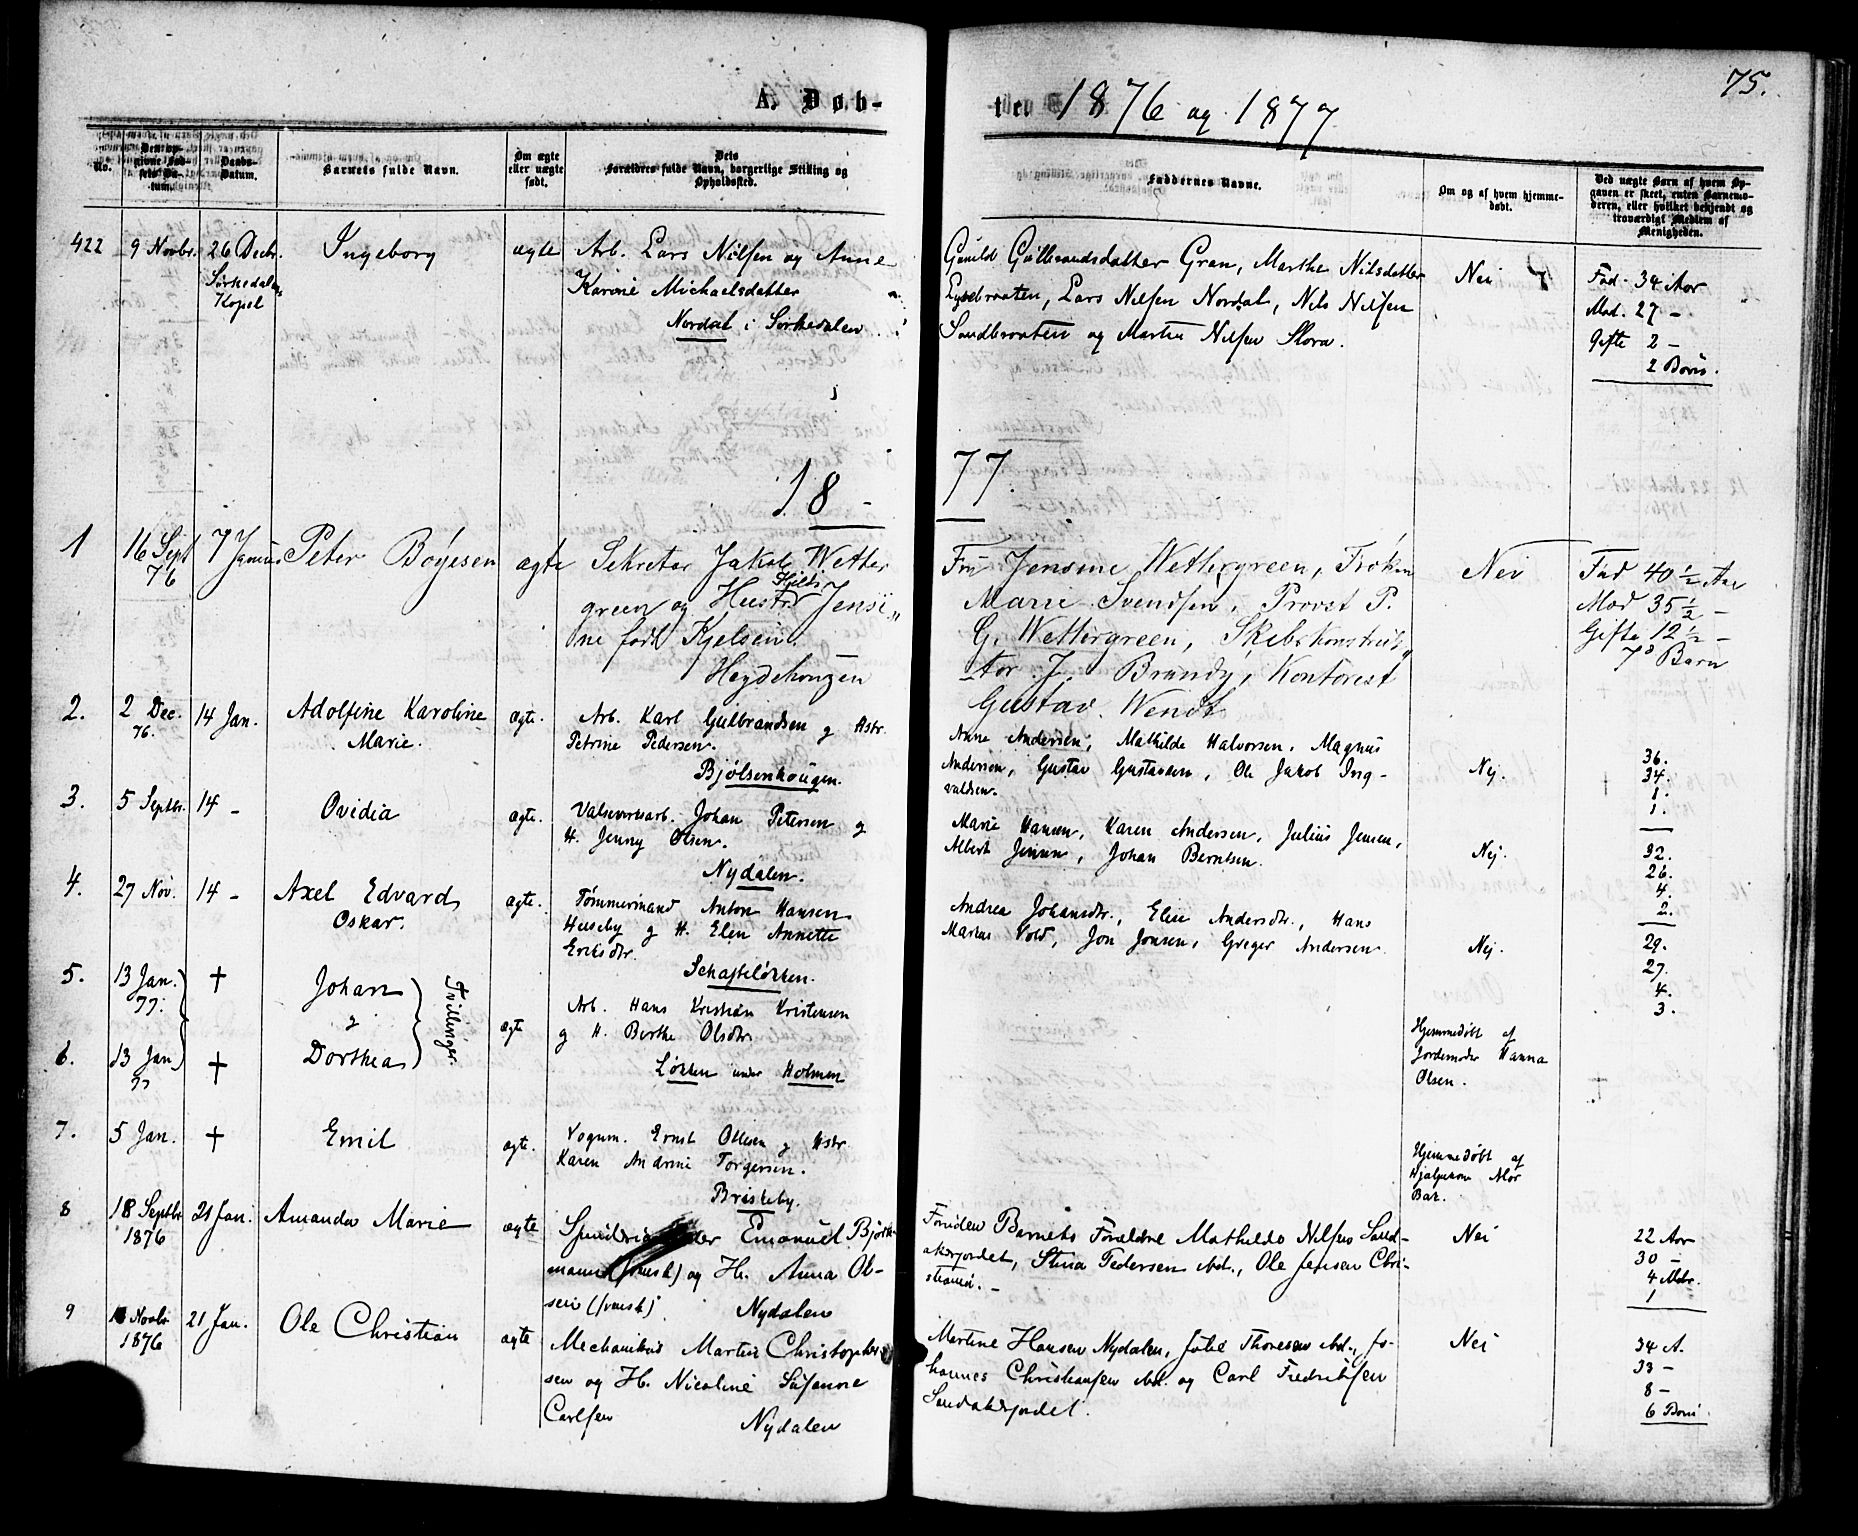 75.
A. Døb-
ter 1876 og 1877
No.
Den opgivne Fødsels Datum.
Daabs-Datum.
Barnets fulde Navn.
Om ægte eller uægte født.
Dets Forældres fulde Navn, borgerlige Stilling og Opholdssted.
Faddernes Navne.
Om og af hvem hjemmedøbt.
Ved uægte Børn af hvem Opgaven er skeet, enten Barnemoderen, eller hvilket bekjendt og troværdigt Medlem af Menigheden.
422 9 Novbr. 26 Decbr. Ingeborg ægte Arb. Lars Nilsen og Anne
Sørkedalens Kapel
Karine Michaelsdatter
Nordal i Sørkedalen
Gunild Gulbrandsdatter Gran, Marthe Nilsdatter
braaten, Lars Nilsen Nordal, Nils Nilsen
Sandbraaten og Martin Nilsen Slora.
Nei
Fad. 34 Aar
Mod. 27 -
gifte 2 -
2 Børn.
18-77
1 16 Sept 76 7 Januar Peter Bøyesen ægte Sekretær Jakob Wetter
green og Hustr Jensi„
ne født Kjelsen.
Heydehougen
Fru Jensine Wettergreen, Frøken
Marie Svendsen, Provst P.
G. Wettergreen, Skibskonstruk„
tør J. Brandy, Kontorist
Gustav Wendt
Nei
Fad 40 ½ Aar
Mod 35 ½ -
Gifte 12 ½ -
7 Barn
2. 2 Dec. 76. 14 Jan. Adolfine Karoline Marie. ægte. Arb. Karl Gulbrandsen g Hstr.
Petrine Pedersen.
Bjølsenhougen.
Anne Andersen, Mathilde Halvorsen, Magnus
Andersen, Gustav Gustavsen, Ole Jakob Ing-
valdsen.
Nej.
36.
34.
1.
1.
3. 5 Septbr. 14 - Ovidia ægte. Valseværksarb. Johan Petersen g
H. Jenny Olsen.
Nydalen.
Marie Hansen, Karen Andersen, Julius Jensen,
Albert Jensen, Johan Berntsen.
Nej.
32.
26.
4.
2.
4. 27 Nov. 14 - Axel Edvard Oskar. ægte. Tømmermand Anton Hansen
Huseby g H. Elen Annette
Eriksdtr.
Schafteløkken.
Andrea Johansdtr., Elise Andersdtr., Hans
Marius Vold, Jon Jonsen, Greger Andersen.
Nej.
29.
27.
4.
3.
5. 13 Jan. 77. † Johan
g
6. 13 Jan 77 † Dorthea
Tvillinger.
ægte
Arb. Hans Kristian Kristensen
g H. Berthe Olsdtr.
Løkken under Holmen
Hjemmedøbt af
Jordemoder Hanna
Olsen.
7. 5 Jan. † Emil ægte. Vognm. Ernst Ottesen g Hstr.
Karen Andrine Torgersen.
Briskeby.
Hjemmedøbt af
8 18 Septbr 1876 21 Jan. Amanda Marie ægte Emanuel Bjørk-
mann (svensk) og H. Anna Ol-
sen (svensk). Nydalen
Foruden Barnets Forældre Mathilde Nilsen Sand-
akerjordet, Stina Pedersen ibd., Ole Jensen Chri-
stiania. -
Nei
22 Aar
30 -
4 Mdr.
1
9 Novbr 1876 21 Jan. Ole Christian ægte Mechanikus Martin Christopher-
sen og H. Nicoline Susanne
Carlsen
Nydalen
Martine Hansen Nydalen, Julie Thoresen ibd., Jo-
hannes Christiansen ibd. og Carl Fredriksen
Sandakerjordet.
Nei
34 A.
33 -
8 -
6 Børn